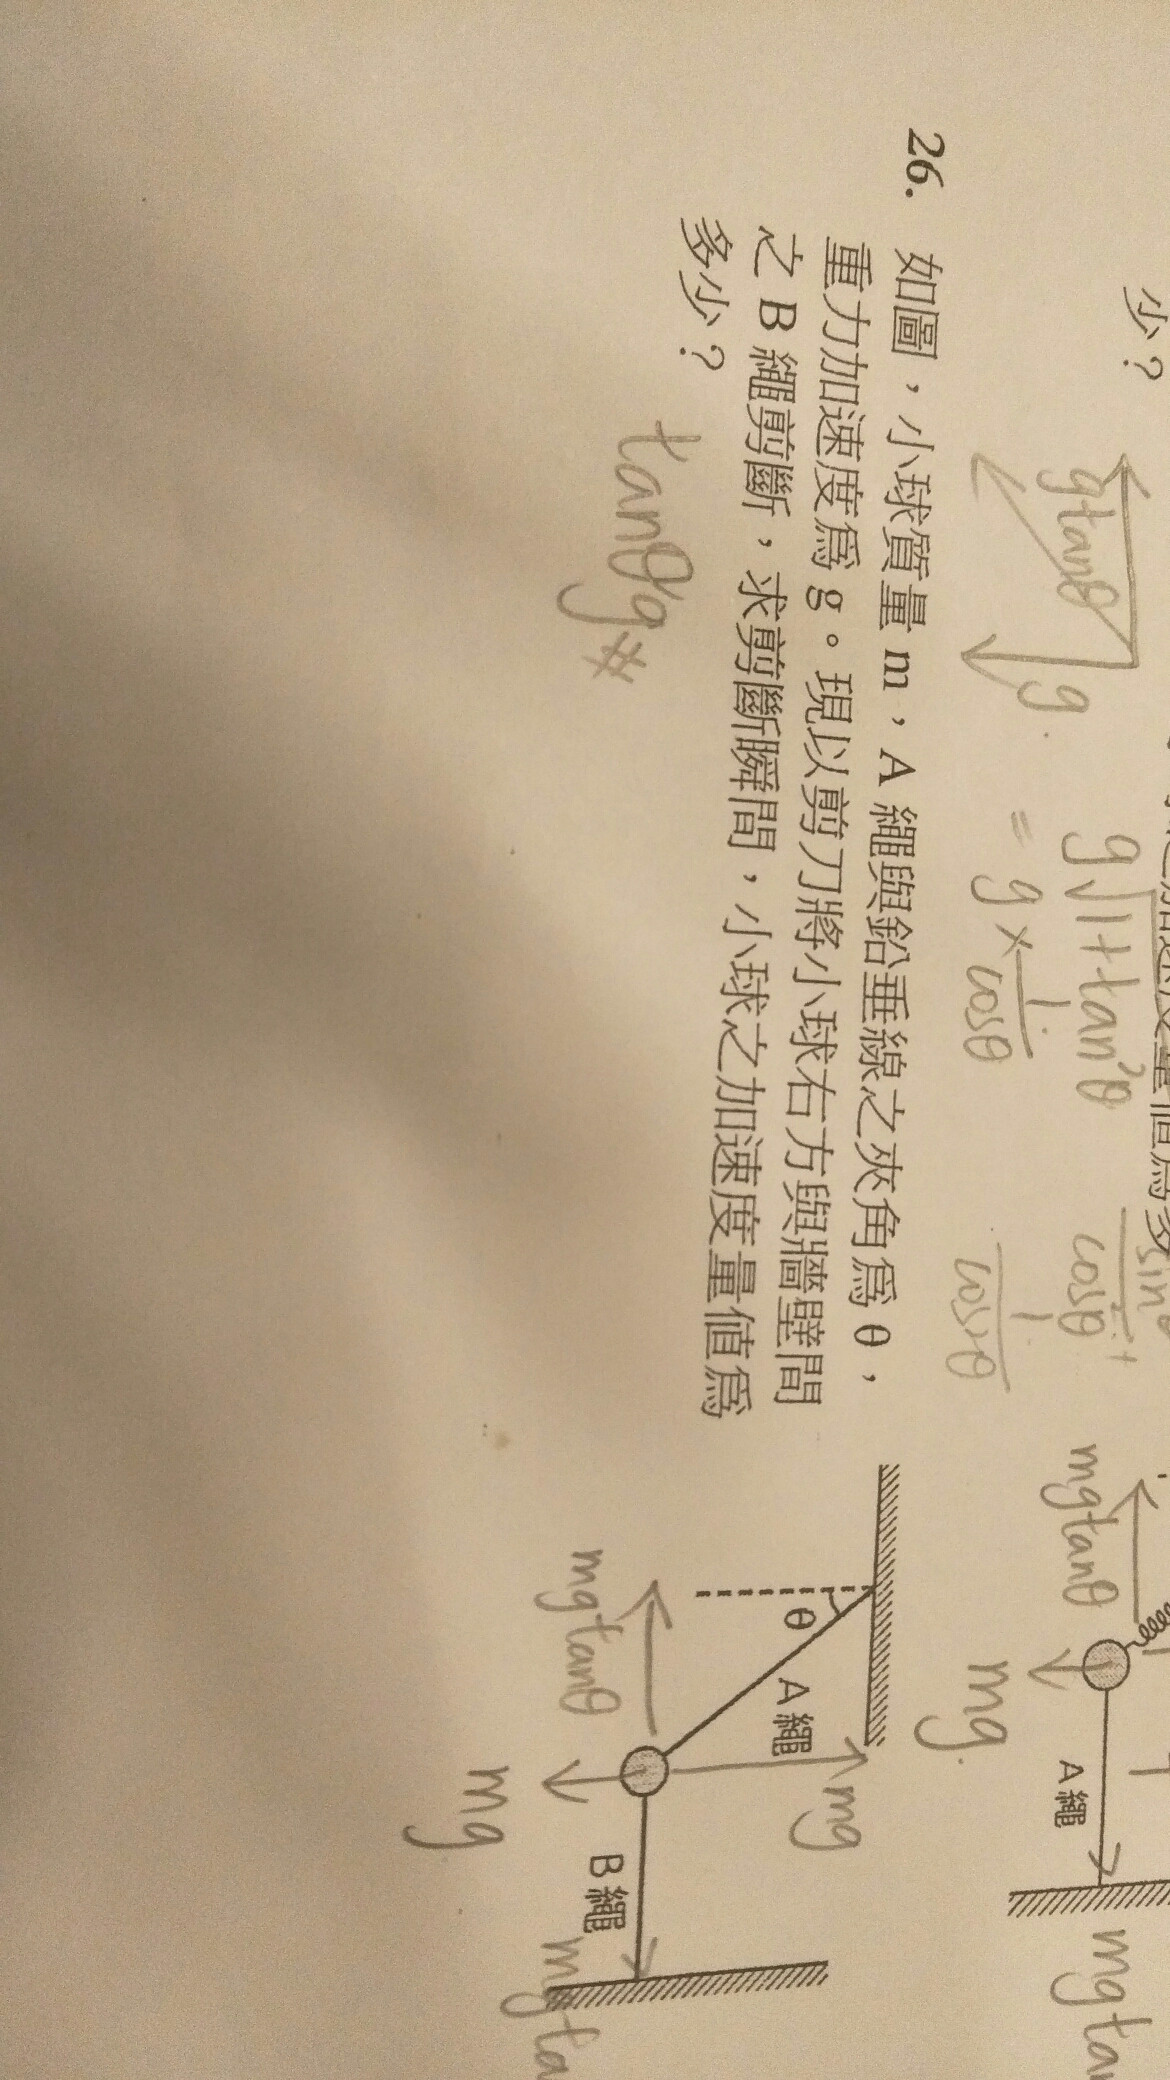 少？
gtanθ
g
g√1+tan²θ
= g × 1/cosθ
cosθ
1
cos²θ
mgtanθ
mg
A 繩
26. 如圖，小球質量 m，A 繩與鉛垂線之夾角為 θ，
重力加速度為 g。現以剪刀將小球右方與牆壁間
之 B 繩剪斷，求剪斷瞬間，小球之加速度量值為
多少？
tanθg#
θ
A 繩
mg
mgtanθ
B 繩
mg